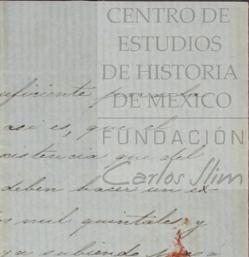 CENTRO DE
ESTUDIOS
DE HISTORIA
DE MEXICO
FUNDACIÓN
Carlos Slim
uficiente para
asi es, que el
xistencia que del
deben hacer un ex-
s mil quintales, y
ya subiendo